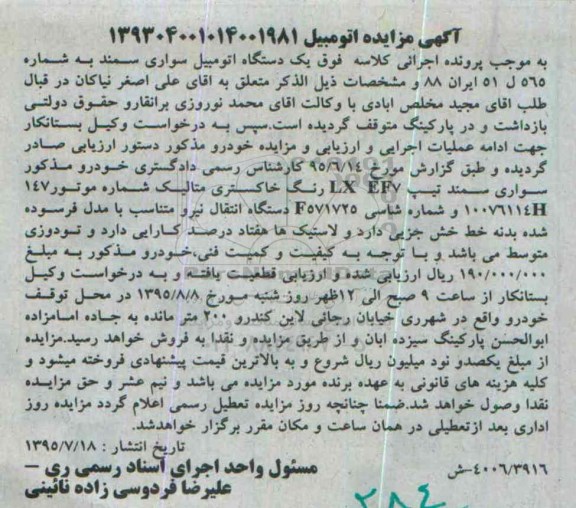 آگهی مزایده اتومبیل ۱۳۹۳۰۴۰۰۱۰۱۴۰۰۱۹۸۱
به موجب پرونده اجرائی کلاسه فوق یک دستگاه اتومبیل سواری سمند به شماره
۵۶۵ ل ۵۱ ایران ۸۸ و مشخصات ذیل الذکر متعلق به اقای علی اصغر نیاکان در قبال
طلب اقای مجید مخلص ابادی با وکالت اقای محمد نوروزی برانقارو حقوق دولتی
بازداشت و در پارکینگ متوقف گردیده است.سپس به درخواست وکیل بستانکار
جهت ادامه عملیات اجرایی و ارزیابی و مزایده خودرو مذکور دستور ارزیابی صادر
گردیده و طبق گزارش مورخ ۹۵/۶/۱۴ کارشناس رسمی دادگستری خودرو مذکور
سواری سمند تیپ LX EF۷ رنگ خاکستری متالیک شماره موتور۱۴۷
۱۰۰۷۶۱۱۴H و شماره شاسی F۵۷۱۷۲۵ دستگاه انتقال نیرو متناسب با مدل فرسوده
شده بدنه خط خش جزیی دارد و لاستیک ها هفتاد درصد کارایی دارد و تودوزی
متوسط می باشد و با توجه به کیفیت و کمیت فنی،خودرو مذکور به مبلغ
۱۹۰/۰۰۰/۰۰۰ ریال ارزیابی شده و ارزیابی قطعیت یافته و به درخواست وکیل
بستانکار از ساعت ۹ صبح الی ۱۲ظهر روز شنبه مورخ ۱۳۹۵/۸/۸ در محل توقف
خودرو واقع در شهرری خیابان رجائی لاین کندرو ۲۰۰ متر مانده به جاده امامزاده
ابوالحسن پارکینگ سیزده ابان و از طریق مزایده و نقدا به فروش خواهد رسید.مزایده
از مبلغ یکصدو نود میلیون ریال شروع و به بالاترین قیمت پیشنهادی فروخته میشود و
کلیه هزینه های قانونی به عهده برنده مورد مزایده می باشد و نیم عشر و حق مزایده
نقدا وصول خواهد شد.ضمنا چنانچه روز مزایده تعطیل رسمی اعلام گردد مزایده روز
اداری بعد ازتعطیلی در همان ساعت و مکان مقرر برگزار خواهدشد.
تاریخ انتشار : ۱۳۹۵/۷/۱۸
۴۰۰۶/۳۹۱۶-ش مسئول واحد اجرای اسناد رسمی ری –
علیرضا فردوسی زاده نائینی
۲۸۴